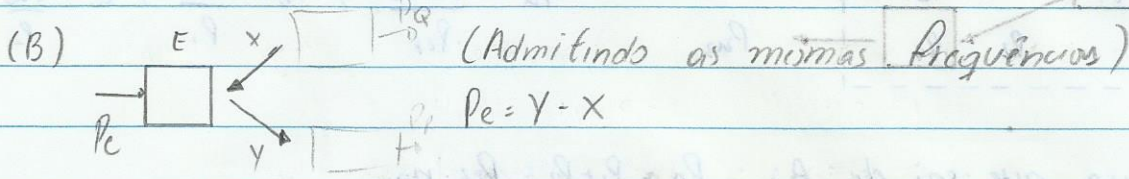 (B) E X (Admitindo as mesmas frequências)
Pe Y Pe = Y - X